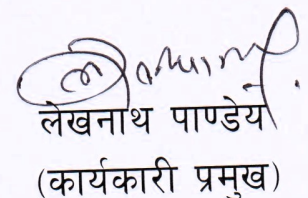 लेखनाथ पाण्डेय
(कार्यकारी प्रमुख)